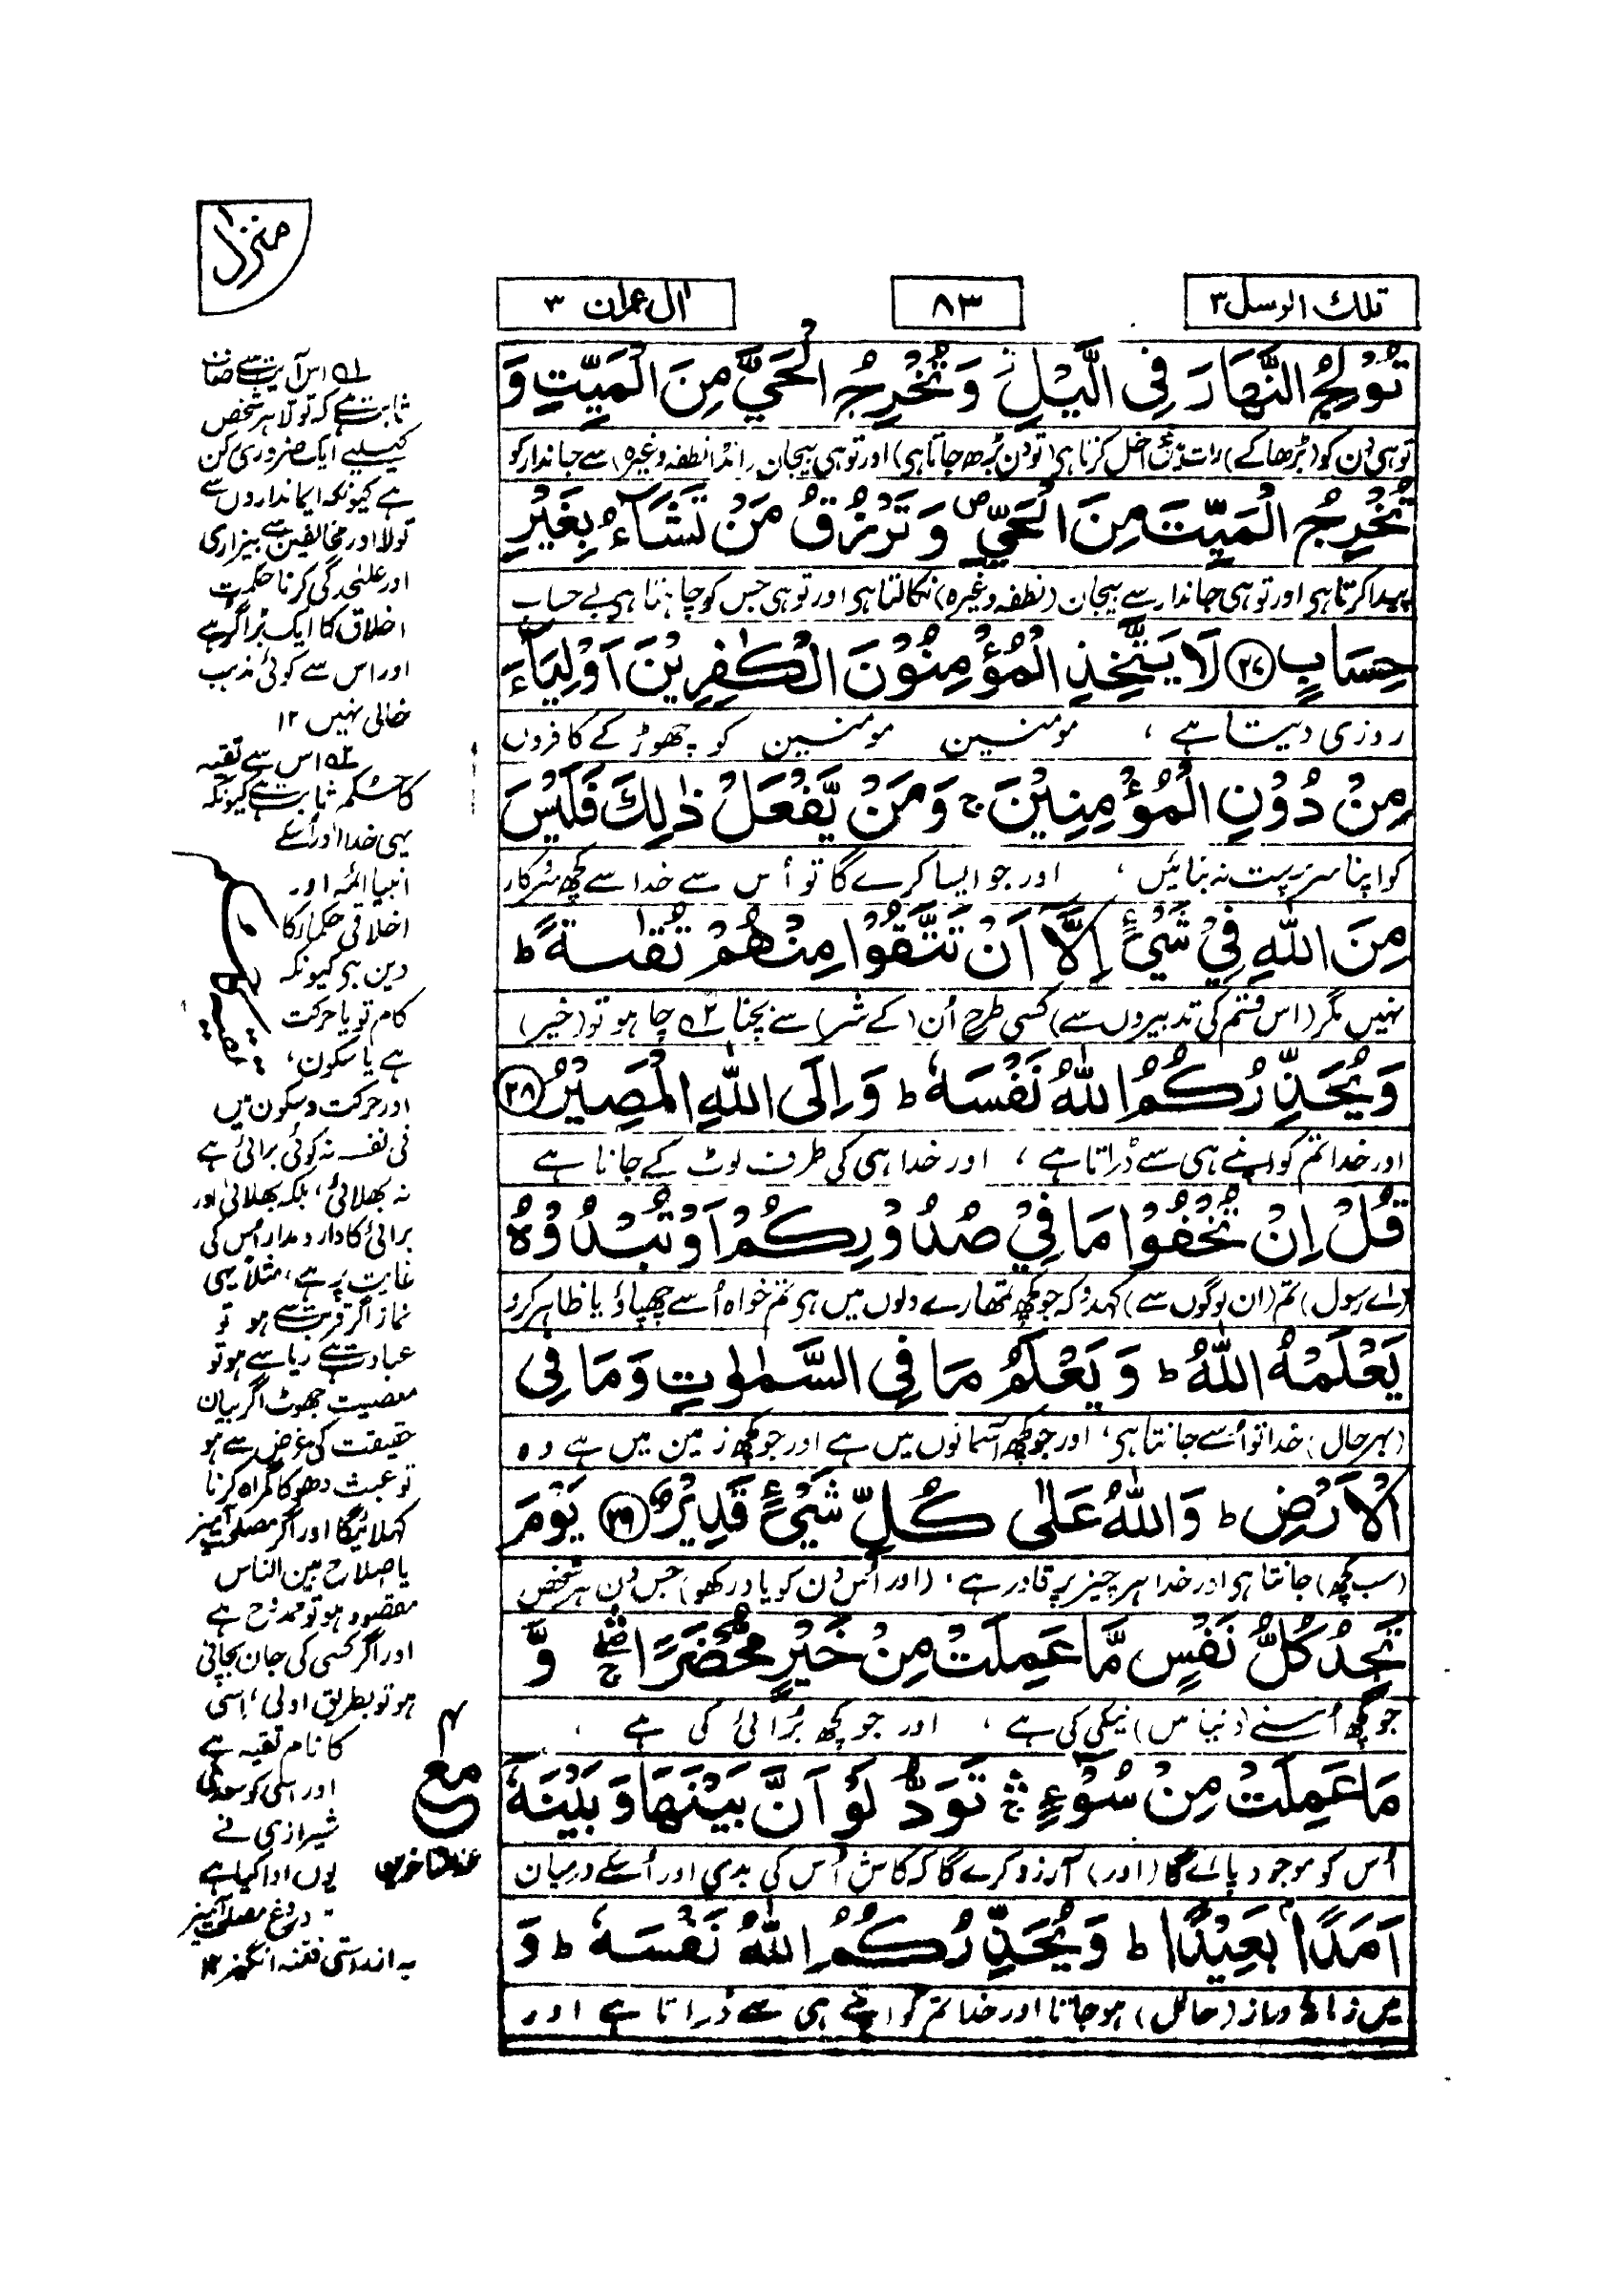 منزل ۱
تلك الرسل ۳
۸۳
اٰل عمرٰن ۳
تُوْلِجُ النَّهَارَ فِی الَّیْلِ ز وَ تُخْرِجُ الْحَیَّ مِنَ الْمَیِّتِ وَ
تو ہی دن کو (بڑھا کے) رات میں داخل کرتا ہی (تو دن بڑھ جاتا ہی) اور تو ہی بیجان (انڈا نطفہ وغیرہ) سے جاندار کو
تُخْرِجُ الْمَیِّتَ مِنَ الْحَیِّ ز وَ تَرْزُقُ مَنْ تَشَآءُ بِغَیْرِ
پیدا کرتا ہی اور تو ہی جاندار سے بیجان (نطفہ وغیرہ) نکالتا ہی اور تو ہی جس کو چاہتا ہی بے حساب
حِسَابٍ ﴿۲۷﴾ لَا یَتَّخِذِ الْمُؤْمِنُوْنَ الْكٰفِرِیْنَ اَوْلِیَآءَ
روزی دیتا ہے ، مومنین مومنین کو چھوڑ کے کافروں
مِنْ دُوْنِ الْمُؤْمِنِیْنَ ج وَ مَنْ یَّفْعَلْ ذٰلِكَ فَلَیْسَ
کو اپنا سرپرست نہ بنائیں ، اور جو ایسا کرے گا تو اُس سے خدا سے کچھ سروکار
مِنَ اللّٰهِ فِیْ شَیْءٍ اِلَّاۤ اَنْ تَتَّقُوْا مِنْهُمْ تُقٰىةً ط
نہیں مگر (اس قسم کی تدبیروں سے) کسی طرح اُن (کے شر) سے بچنا ۲؎ چاہو تو (خیر)
وَ یُحَذِّرُكُمُ اللّٰهُ نَفْسَهٗ ط وَ اِلَی اللّٰهِ الْمَصِیْرُ ﴿۲۸﴾
اور خدا تم کو اپنے ہی سے ڈراتا ہے ، اور خدا ہی کی طرف لوٹ کے جانا ہے
قُلْ اِنْ تُخْفُوْا مَا فِیْ صُدُوْرِكُمْ اَوْ تُبْدُوْهُ
(اے رسول) تم (ان لوگوں سے) کہدو کہ جو کچھ تمھارے دلوں میں ہی تم خواہ اُسے چھپاؤ یا ظاہر کرو
یَعْلَمْهُ اللّٰهُ ط وَ یَعْلَمُ مَا فِی السَّمٰوٰتِ وَ مَا فِی
(بہر حال) خدا تو اُسے جانتا ہی ، اور جو کچھ آسمانوں میں ہے اور جو کچھ زمین میں ہے وہ
الْاَرْضِ ط وَ اللّٰهُ عَلٰی كُلِّ شَیْءٍ قَدِیْرٌ ﴿۲۹﴾ یَوْمَ
(سب کچھ) جانتا ہی اور خدا ہر چیز پر قادر ہے ، (اور اُس دن کو یاد رکھو) جس دن ہر شخص
تَجِدُ كُلُّ نَفْسٍ مَّا عَمِلَتْ مِنْ خَیْرٍ مُّحْضَرًا وَّ
جو کچھ اُسنے (دنیا میں) نیکی کی ہے ، اور جو کچھ بُرائی کی ہے ،
مَا عَمِلَتْ مِنْ سُوْٓءٍ تَوَدُّ لَوْ اَنَّ بَیْنَهَا وَ بَیْنَهٗ
اُس کو موجود پائے گا (اور) آرزو کرے گا کہ کاش اُس کی بدی اور اُسکے درمیان
اَمَدًا بَعِیْدًا ط وَ یُحَذِّرُكُمُ اللّٰهُ نَفْسَهٗ ط وَ
میں زمانہ دراز (حائل) ہو جاتا اور خدا تم کو اپنے ہی سے ڈراتا ہے اور
۱؎ اس آیت سے صاف
ثابت ہے کہ تولا ہر شخص
کیلیے ایک ضروری رکن
ہے کیونکہ ایمانداروں سے
تولا اور مخالفین سے بیزاری
اور علٰحدگی کرنا حکمت
اخلاق کا ایک بڑا گر ہے
اور اس سے کوئی مذہب
خالی نہیں ۱۲
۲؎ اس سے تقیہ
کا حکم ثابت ہے کیونکہ
یہی خدا اور اُسکے
انبیا ائمہ اور
اخلاقی حکما رکا
دین ہی کیونکہ
کام تو یا حرکت
ہے یا سکون ،
اور حرکت و سکون میں
فی نفسہ نہ کوئی برائی ہے
نہ بھلائی ، بلکہ بھلائی اور
برائی کا دارو مدار اُس کی
غایت پر ہے ، مثلاً یہی
نماز اگر قربت سے ہو تو
عبادت ہے ریا سے ہو تو
معصیت جھوٹ اگر بیان
حقیقت کی غرض سے ہو
تو عبث دھوکا گمراہ کرنا
کہلائیگا اور اگر مصلحت آمیز
یا اصلاح بین الناس
مقصود ہو تو ممدوح ہے
اور اگر کسی کی جان بچانی
ہو تو بطریق اولی ، اسی
کا نام تقیہ ہے
اور اسکی کو سعدی
شیرازی نے
یوں ادا کیا ہے
دروغ مصلحت آمیز
بہ از راستی فتنہ انگیز ۱۲
مع